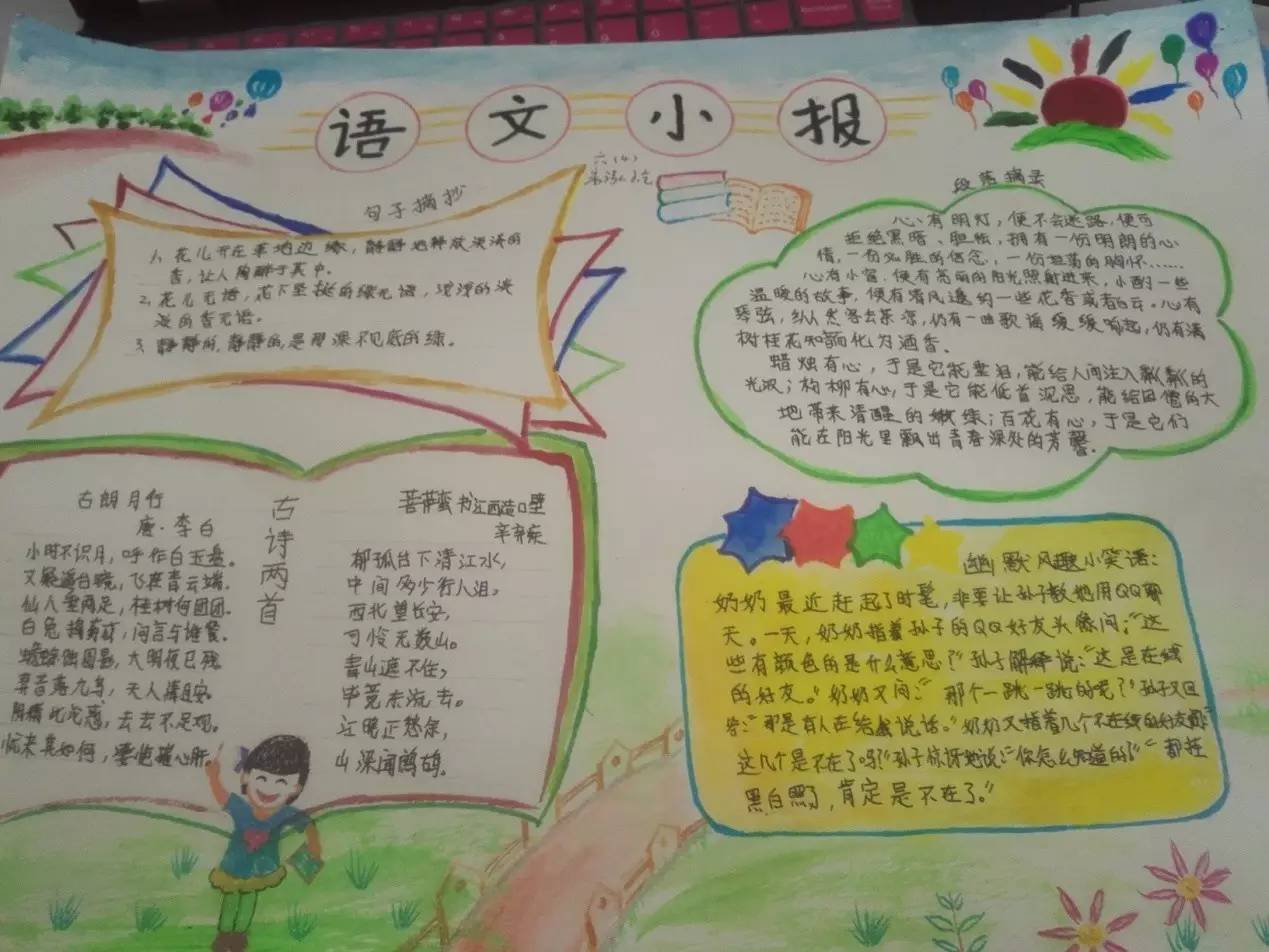 语文小报
六(4)
句子摘抄
1、花儿开在草地边缘，静静地释放淡淡的
香，让人陶醉于其中。
2、花儿无语，花下坚挺的绿无语，浮浮的淡
淡的香无语。
3、静静的，静静的，是那深不见底的绿。
段落摘录
心有明灯，便不会迷路，便可
拒绝黑暗、胆怯，拥有一份明朗的心
情，一份必胜的信念，一份坦荡的胸怀……
心有小窗，便有亮丽的阳光照射进来，小酌一些
温暖的故事，便有清风邀约一些花香或者白云。心有
琴弦，纵然客去茶凉，仍有一曲歌谣缓缓响起，仍有满
树桂花知韵化为酒香。
蜡烛有心，于是它能垂泪，能给人间注入粼粼的
光波；杨柳有心，于是它能低首沉思，能给困倦的大
地带来清醒的嫩绿；百花有心，于是它们
能在阳光里飘出青春深处的芳馨。
古诗两首
古朗月行
唐·李白
小时不识月，呼作白玉盘。
又疑瑶台镜，飞在青云端。
仙人垂两足，桂树何团团。
白兔捣药成，问言与谁餐。
蟾蜍蚀圆影，大明夜已残。
羿昔落九乌，天人清且安。
阴精此沦惑，去去不足观。
忧来其如何，凄怆摧心肝。
菩萨蛮 书江西造口壁
辛弃疾
郁孤台下清江水，
中间多少行人泪。
西北望长安，
可怜无数山。
青山遮不住，
毕竟东流去。
江晚正愁余，
山深闻鹧鸪。
幽默风趣小笑话：
奶奶最近赶起了时髦，非要让孙子教她用QQ聊
天。一天，奶奶指着孙子的QQ好友头像问：“这
些有颜色的是什么意思？”孙子解释说：“这是在线
的好友。”奶奶又问：“那个一跳一跳的呢？”孙子又回
答：“那是有人在给我说话。”奶奶又指着几个不在线的好友问：“
这几个是不在了吗？”孙子惊讶地说：“你怎么知道的？”“都挂
黑白照了，肯定是不在了。”